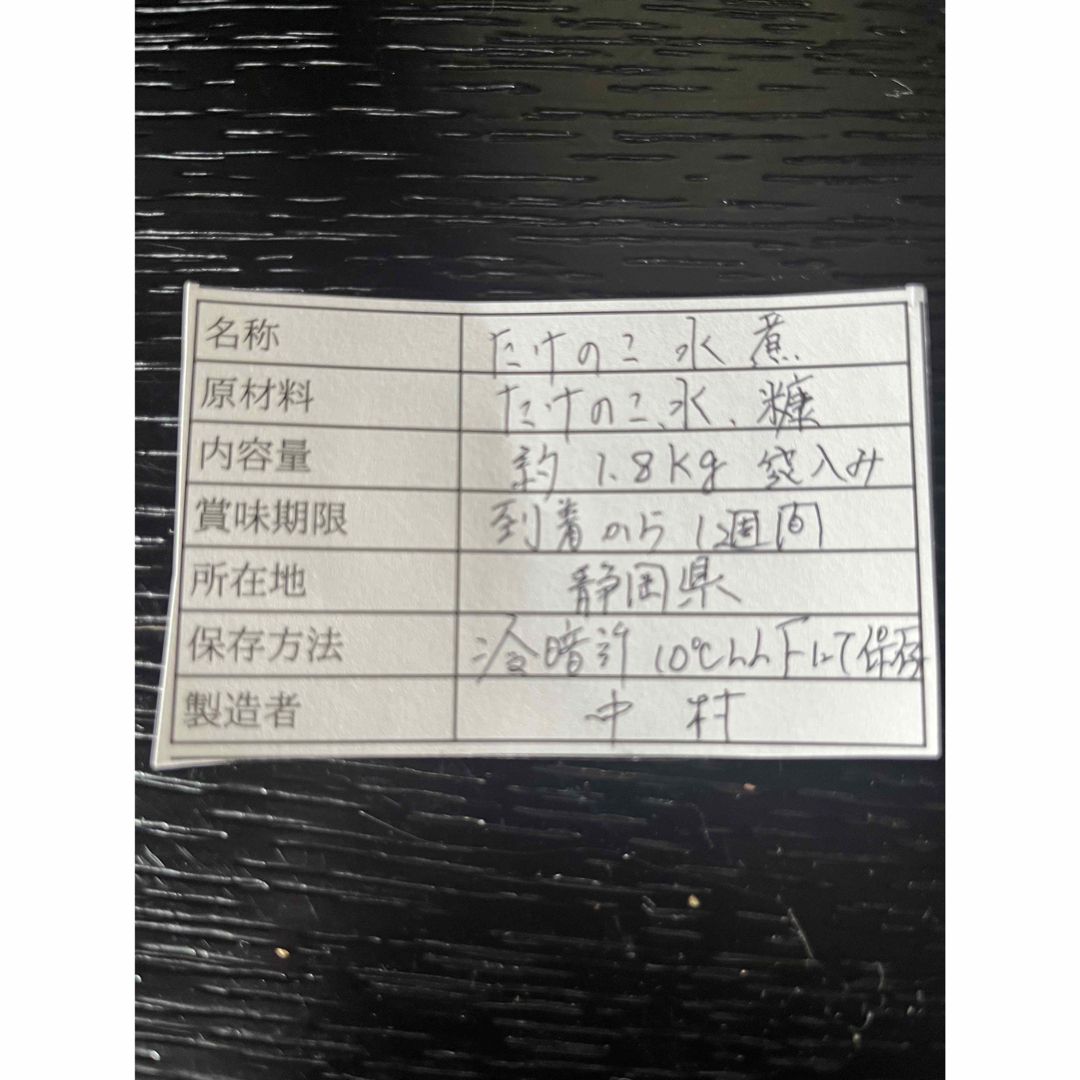 名称 たけのこ水煮
原材料 たけのこ、水、糠
内容量 約1.8kg 袋入み
賞味期限 到着から1週間
所在地 静岡県
保存方法 冷暗所10℃以下にて保存
製造者 中村